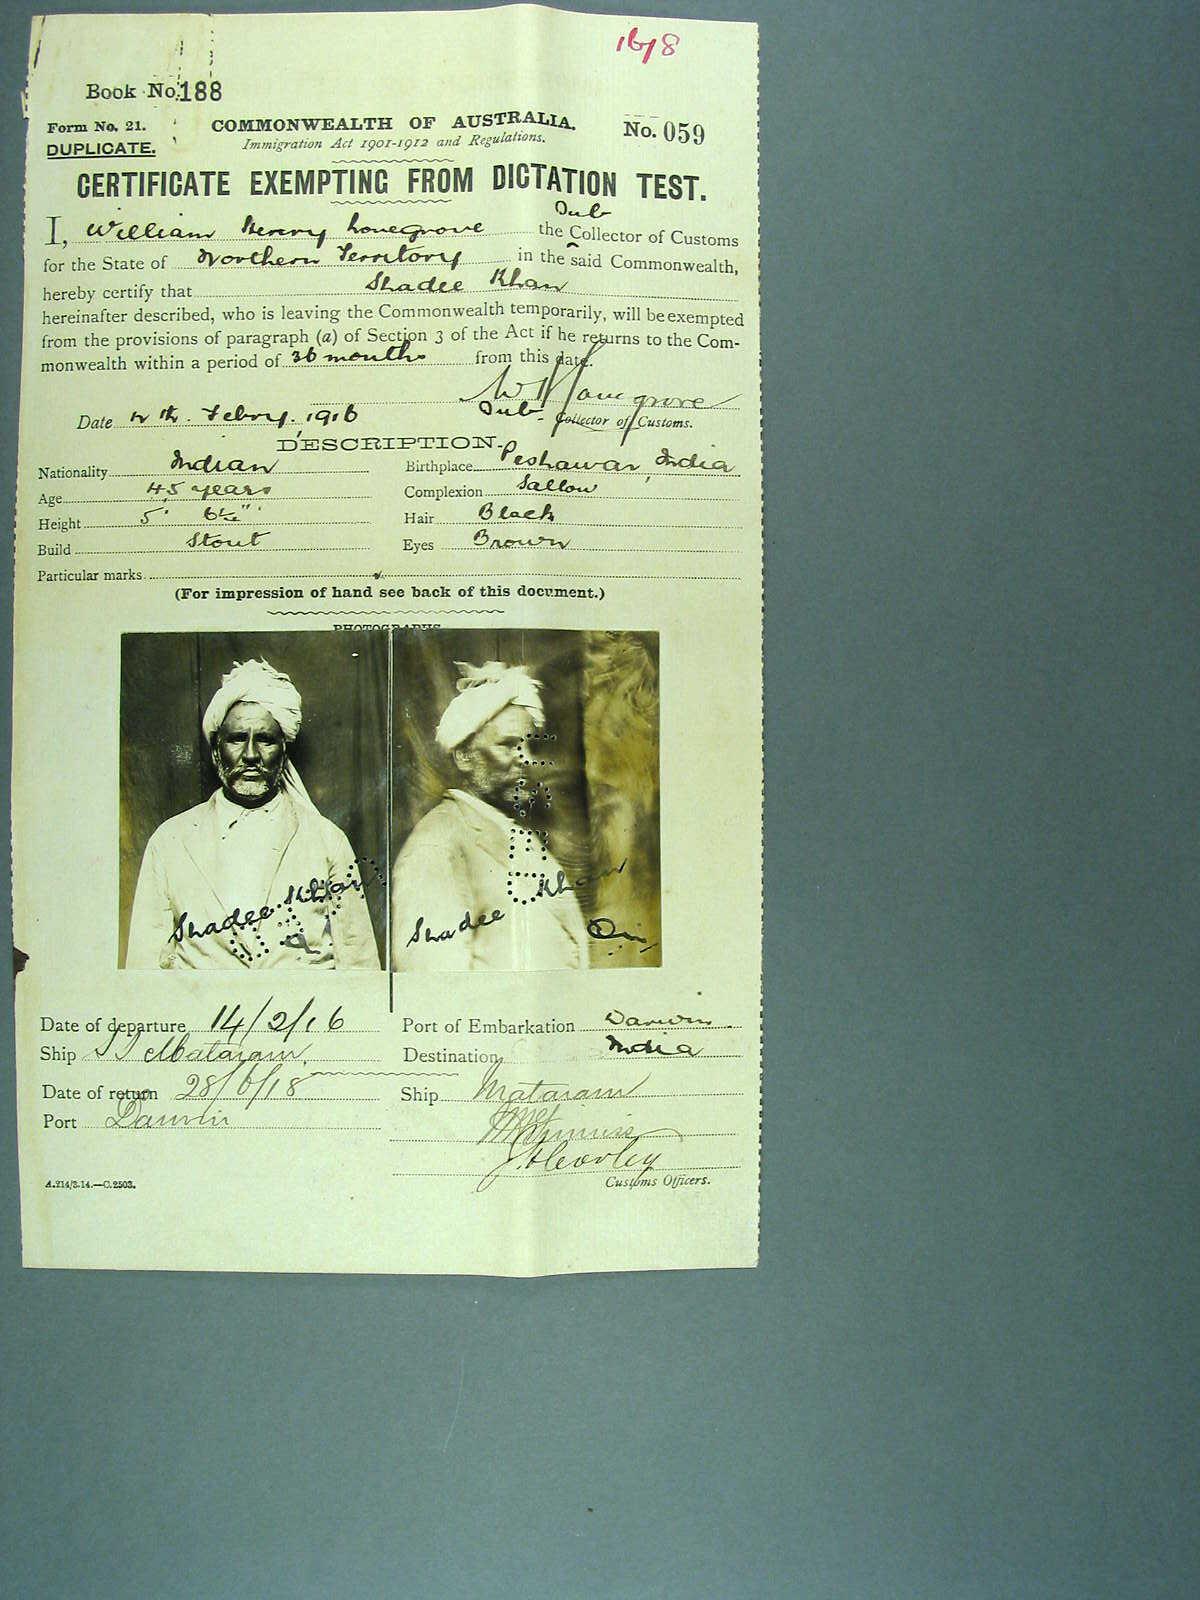 1618
Book No. 188
Form No. 21.
COMMONWEALTH OF AUSTRALIA.
No. 059
DUPLICATE.
Immigration Act 1901-1912 and Regulations.
CERTIFICATE EXEMPTING FROM DICTATION TEST.
Sub
I, William Henry Lovegrove the ^ Collector of Customs
for the State of Northern Territory in the said Commonwealth,
hereby certify that Shadee Khan
hereinafter described, who is leaving the Commonwealth temporarily, will be exempted
from the provisions of paragraph (a) of Section 3 of the Act if he returns to the Com-
monwealth within a period of 36 months from this date.
W H Lovegrove
Date 12th. Febry. 1916 Sub- Collector of Customs.
DESCRIPTION.
Nationality Indian Birthplace Peshawar, India
Age 45 years Complexion Sallow
Height 5' 6½" Hair Black
Build Stout Eyes Brown
Particular marks
(For impression of hand see back of this document.)
PHOTOGRAPHS
USED
Shadee Khan
Shadee Khan
Date of departure 14/2/16 Port of Embarkation Darwin.
Ship SS Mataram. Destination India
Date of return 28/6/18 Ship Mataram
Port Darwin
Customs Officers.
A.214/3.14.—C.2503.